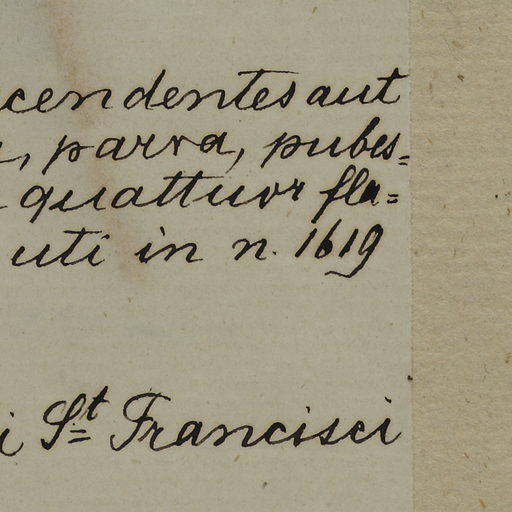 cendentes aut
, parva, pubes=
quattuor fla=
uti in n. 1619
i St Francisci